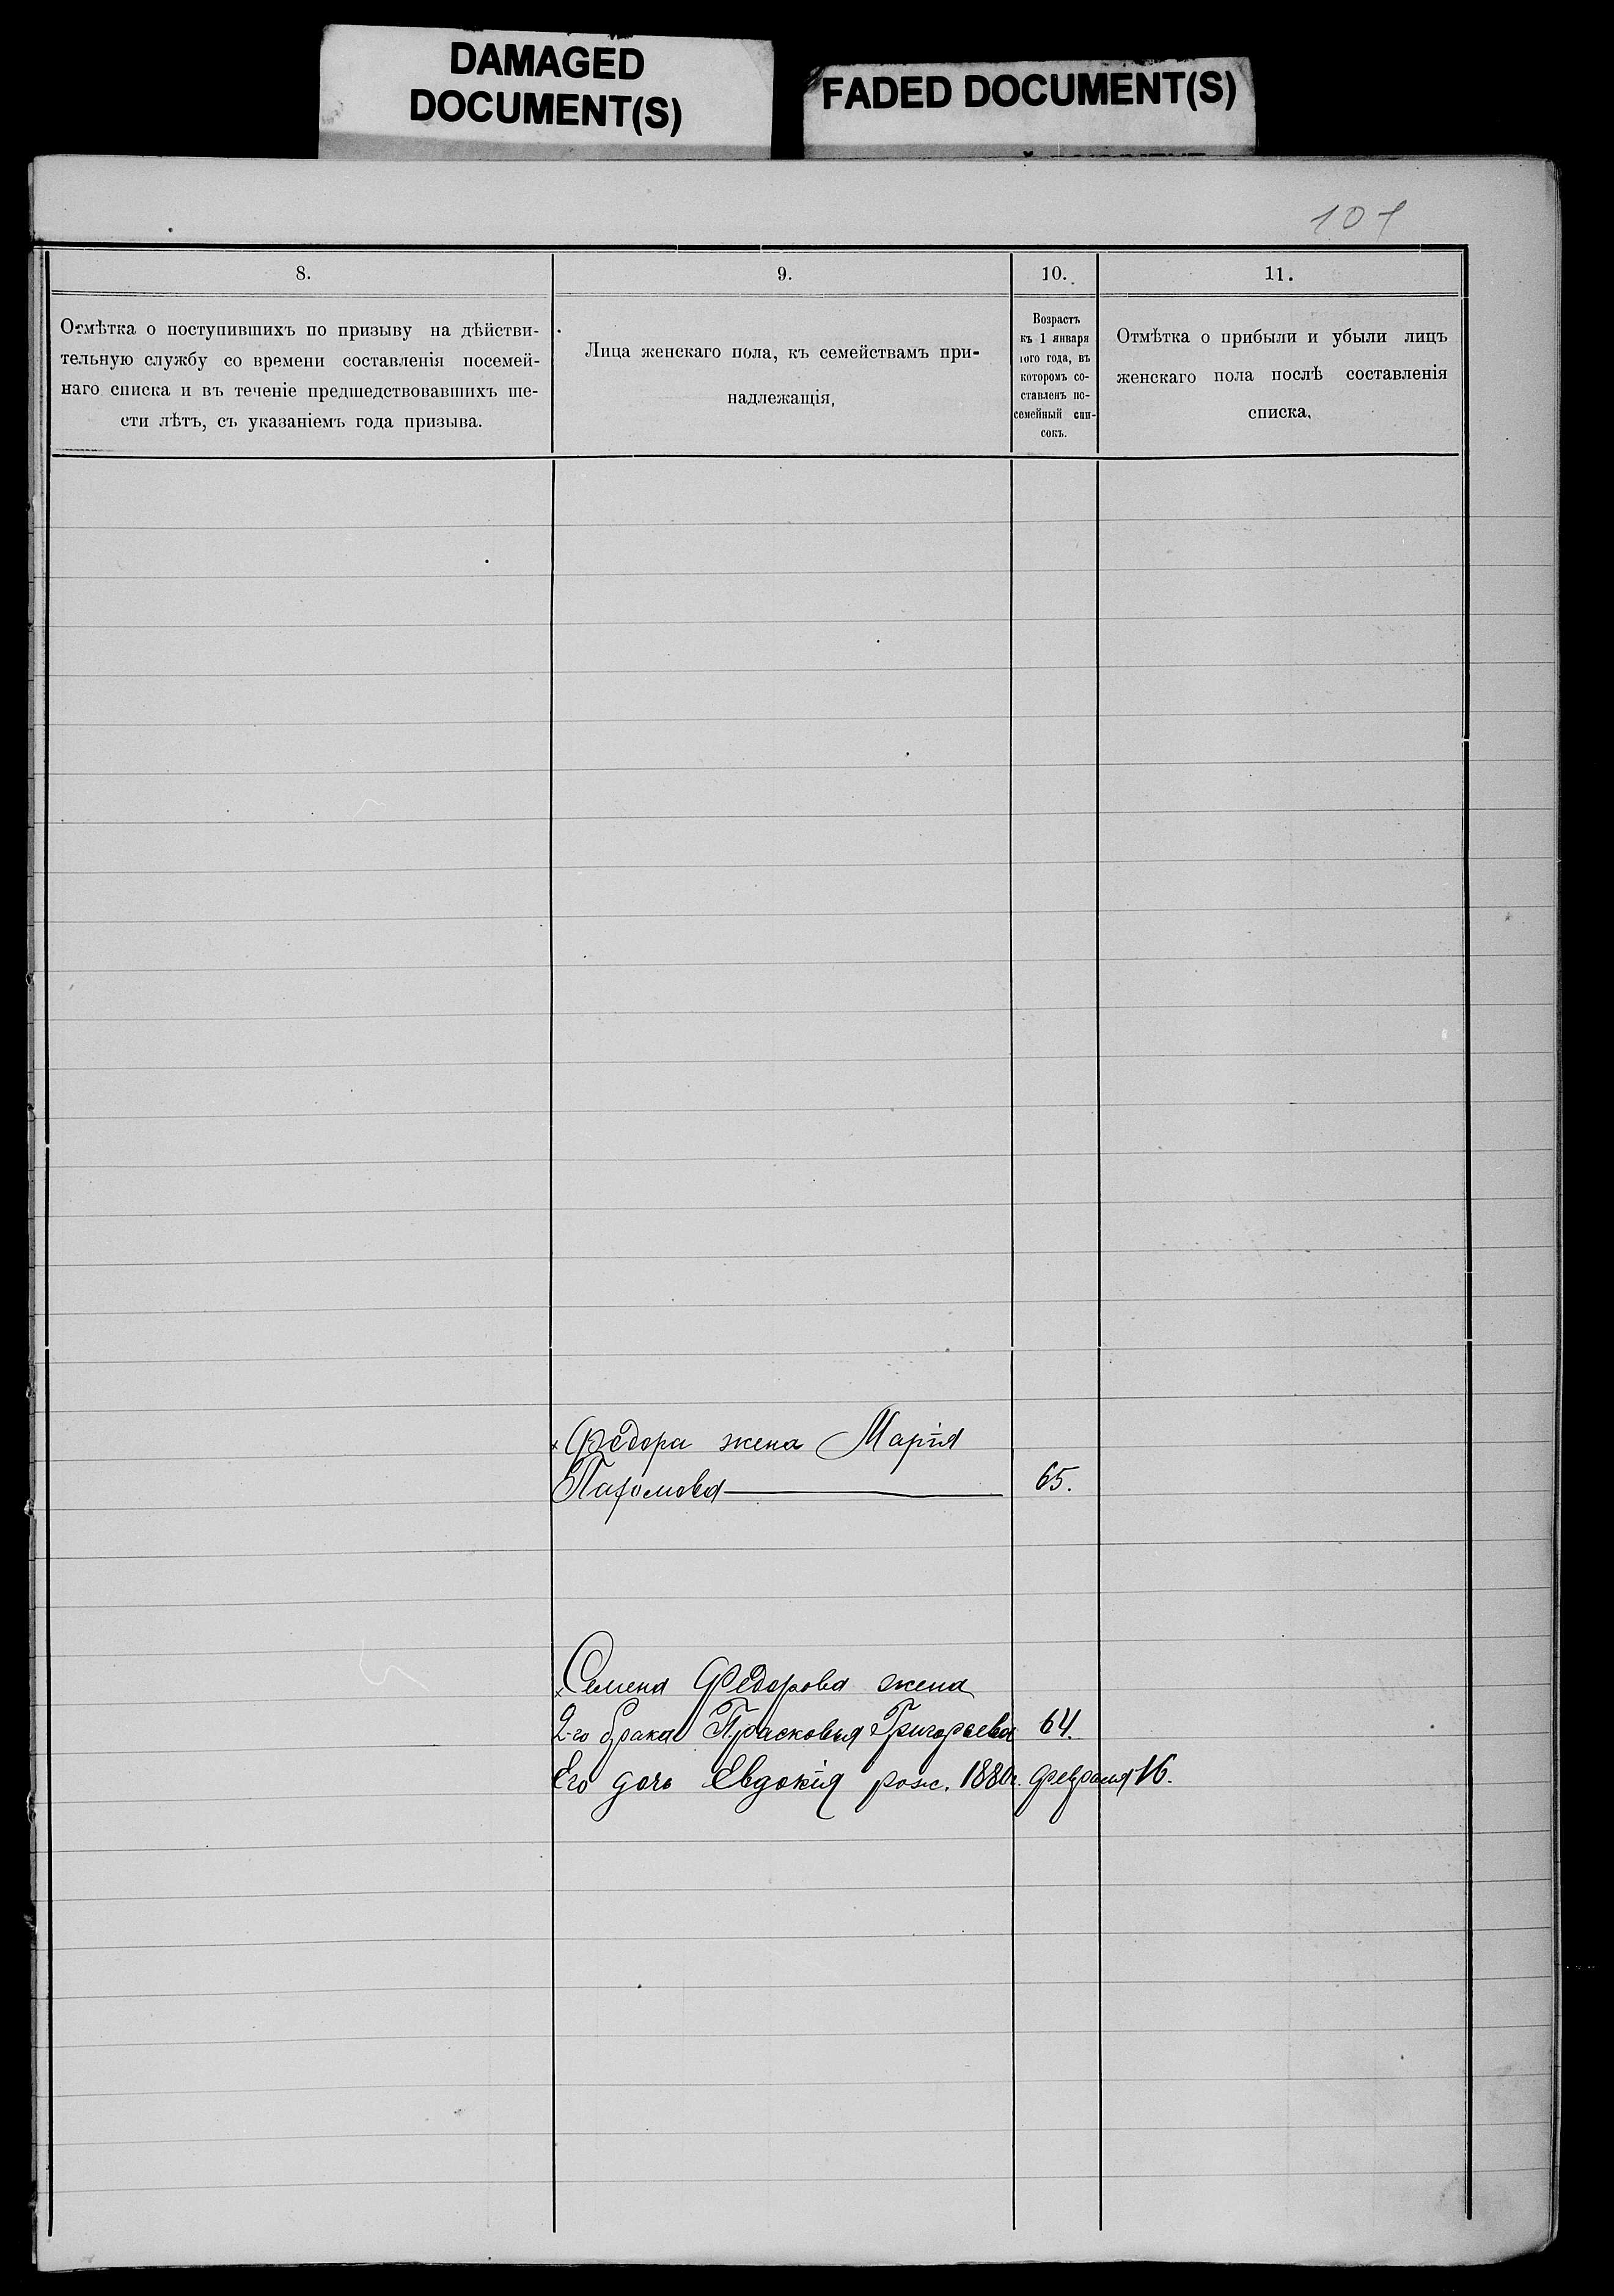 DAMAGED
DOCUMENT(S)
FADED DOCUMENT(S)
101
8.
9.
10.
11.
Отмѣтка о поступившихъ по призыву на дѣйстви-
тельную службу со времени составленія посемей-
наго списка и въ теченіе предшедствовавшихъ ше-
сти лѣтъ, съ указаніемъ года призыва.
Лица женскаго пола, къ семействамъ при-
надлежащія,
Возрастъ
къ 1 января
того года, въ
которомъ со-
ставленъ по-
семейный спи-
сокъ.
Отмѣтка о прибыли и убыли лицъ
женскаго пола послѣ составленія
списка,
Федора жена Марія
Пафомова 65.
Семена Федорова жена
2-го брака Прасковья Григорьева 64.
Его дочь Евдокія рож. 1880г. февраля 16.